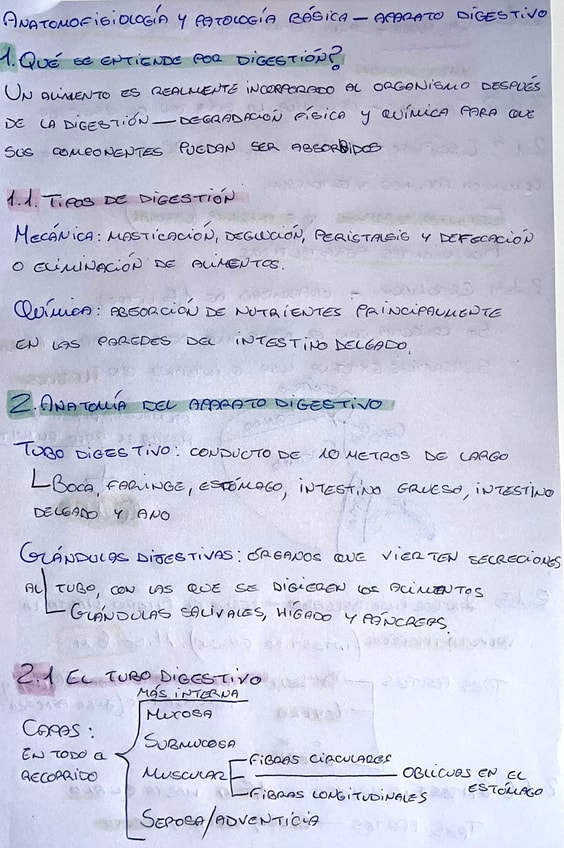 ANATOMOFISIOLOGÍA Y PATOLOGÍA BÁSICA — APARATO DIGESTIVO
1. QUÉ SE ENTIENDE POR DIGESTIÓN?
UN ALIMENTO ES REALMENTE INCORPORADO AL ORGANISMO DESPUÉS
DE LA DIGESTIÓN — DEGRADACIÓN FÍSICA Y QUÍMICA PARA QUE
SUS COMPONENTES PUEDAN SER ABSORBIDOS
1.1. TIPOS DE DIGESTIÓN
MECÁNICA: MASTICACIÓN, DEGLUCIÓN, PERISTALSIS Y DEFECACIÓN
O ELIMINACIÓN DE ALIMENTOS.
QUÍMICA: ABSORCIÓN DE NUTRIENTES PRINCIPALMENTE
EN LAS PAREDES DEL INTESTINO DELGADO.
2. ANATOMÍA DEL APARATO DIGESTIVO
TUBO DIGESTIVO: CONDUCTO DE 10 METROS DE LARGO
BOCA, FARINGE, ESTÓMAGO, INTESTINO GRUESO, INTESTINO
DELGADO Y ANO
GLÁNDULAS DIGESTIVAS: ÓRGANOS QUE VIERTEN SECRECIONES
AL TUBO, CON LAS QUE SE DIGIEREN LOS ALIMENTOS
GLÁNDULAS SALIVALES, HÍGADO Y PÁNCREAS.
2.1 EL TUBO DIGESTIVO
MÁS INTERNA
CAPAS:
EN TODO EL
RECORRIDO
MUCOSA
SUBMUCOSA
MUSCULAR
FIBRAS CIRCULARES
FIBRAS LONGITUDINALES
OBLICUAS EN EL
ESTÓMAGO
SEROSA/ADVENTICIA